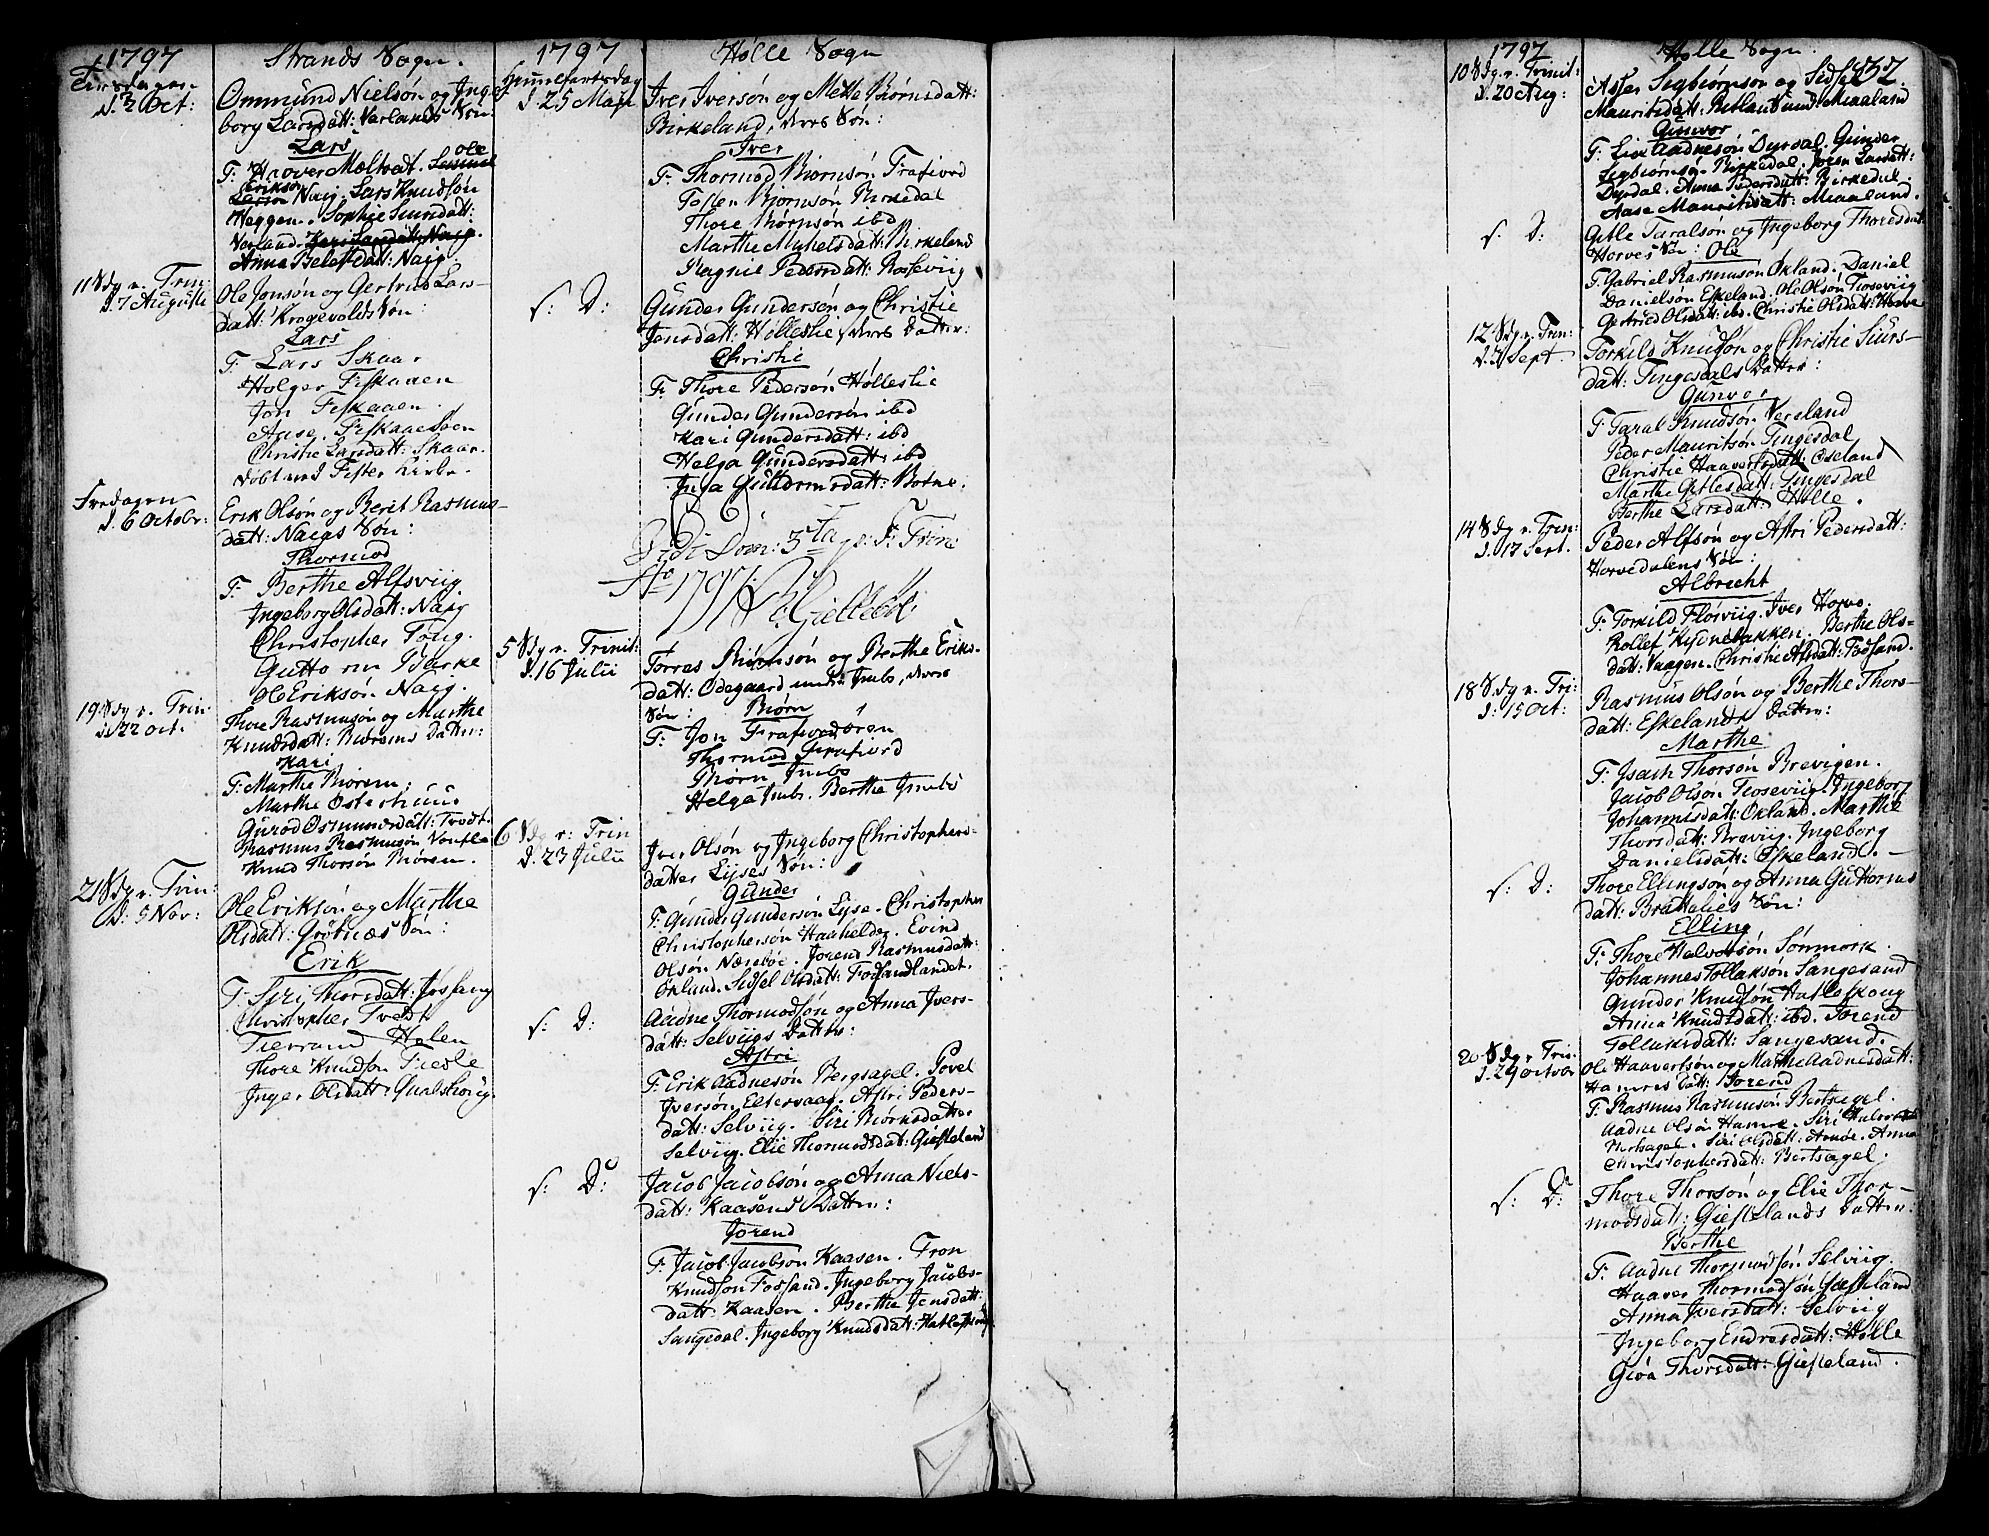 1797
Strands Sogn.
Tirsdagen
d. 3 Oct:
Ommund Nielsøn og Inge
borg Larsdatt: Varlands Søn
Lars
F. Haover Meltvedt. Ole
Erikson Naig. Lars Knudsøn
Heggen. Sophie Siursdatt:
Varland. Kari Larsdatt: Naig.
Anna Beletsdatt: Naig.
11 Sdg n. Trin:
d. 7 Augusti
Ole Jonsøn og Gertrud Lars-
datt: Krogevolds Søn:
Lars
F. Lars Skaar
Holger Fiskaaen
Jon Fiskaaen.
Aase Fiskaaen
Christie Larsdatt: Skaar.
døbt ved Fister Kirke.
Fredagen
d. 6 Octobr:
Erik Olsøn og Berit Rasmus-
datt: Naigs Søn:
Thormod
F. Berthe Alfsviig.
Ingeborg Olsdatt: Naig
Christopher Tøng.
Guttorm Barke
Ole Eriksøn Naig.
19 Sdg n. Trin
d. 22 Oct.
Thore Rasmusøn og Marthe
Knudsdatt: Biørems Datter:
Kari
F: Marthe Biørem.
Marthe Østerhuus
Gurod Osmundsdatt: Tvedt.
Rasmus Rasmusøn Voutla
Knud Thorsøn Biørem.
21 Sdg n. Trin:
d. 5 Nov:
Ole Eriksøn og Marthe
Olsdatt: Grøtnæs Søn:
Erik
F. Siri Thorsdatt: Jøssang
Christopher Tvedt
Tierrand Holen
Thore Knudsøn Tiesle
Inger Olsdatt: Qualshoug.
1797
Hølle Sogn
Himmelfartsdag
d. 25 Maji
Iver Iversøn og Mette Biørnsdatt:
Birkeland, deres Søn:
Iver
F. Thormod Biørnsøn Frafiord
Tosten Biørnsøn Birkedal
Thore Biørnsøn ibd
Marthe Mikelsdatt: Birkeland
Ragnie Pedersdatt: Rosseviig
s: D:
Gunder Gundersøn og Christie
Jonsdatt: Hølleslie, deres Datter:
Christie
F. Thore Pedersøn Hølleslie
Gunder Gundersøn ibd
Kari Gundersdatt: ibd
Helga Gundersdatt: ibd
Inga Guttormsdatt: Botne.
Vidi Dom: 3tia p: F: Trin:
Ao 1797.
5 Sdg n. Trinit:
d. 16 Julii
Torras Biørnsøn og Berthe Eriks-
datt: Ødegaard under Imbs, deres
Søn: Biørn
F: Jon Frafiordøren
Thormod Frafiord
Biørn Imbs
Helga Imbs. Berthe Imbs
6 Sdg n: Trin
d. 23 Julii
Iver Olsøn og Ingeborg Christophers-
datter Lyses Søn:
Gunder
F. Gunder Gundersøn Lyse. Christopher
Christophersøn Haaheller. Evind
Olsøn Næsebøe. Jorend Rasmusdatt:
Økland. Sidsel Olsdatt: Fossandlandet.
s: D:
Aadne Thormodsøn og Anna Ivers-
datt: Selviigs Datter:
Astri
F. Erik Aadnesøn Bergsagel. Povel
Iversøn Eltervaag. Astri Peders-
datt: Selviig. Siri Biørnsdatter
Selviig. Elie Thormodsdatt: Giesteland
s: D:
Jacob Jacobsøn og Anna Niels-
datt: Kaasens Datter:
Jorend
F. Jacob Jacobsøn Kaasen. Tron
Knudsøn Fossand. Ingeborg Jacobs-
datt: Kaasen. Berthe Jensdatt:
Sangedal. Ingeborg Knudsdatt: Hatleskoug
1797
Hølle Sogn.
132.
10 Sdg n. Trinit:
d. 20 Aug:
Asser Sigbiørnsøn og Sidsel
Mauritsdatt: Rutland under Miaaland
Gunvor
F: Liv Aadnesøn Dyrdal. Gunder
Sigbiørnsøn Birkedal. Joren Larsdatt:
Dyrdal. Anna Pedersdatt: Birkedal.
Aase Mauritsdatt: Miaaland.
s. D:
Gitle Taralsøn og Ingeborg Thoresdatt
Horves Søn: Ole
F. Gabriel Rasmusøn Økland. Daniel
Danielsøn Eskeland. Ole Olsøn Tiosseviig
Gertrud Olsdatt: ibd. Christie Olsdatt: Horve
12 Sdg n. Trin:
d. 3 Sept.
Torkild Knudsøn og Christie Siurs-
datt: Tingesdals Datter:
Gunvor
F. Taral Knudsøn Vereland
Peder Mauritsøn Tingesdal
Christie Haaversdatt: Oseland
Marthe Gitlesdatt: Tingesdal
Berthe Larsdatt: Hølle.
14 Sdg n. Trin:
d. 17 Sept.
Peder Alfsøn og Astri Pedersdatt:
Horvedalens Søn:
Albrecht
F. Torkild Flørviig. Iver Horve.
Rollef Kydnebakken. Berthe Ols-
datt: Vaagen. Christie Alfsdatt: Fossand.
18 Sdg n. Tri:
d: 15 Oct:
Rasmus Olsøn og Berthe Thors-
datt: Eskelands Datter:
Marthe
F: Isach Thorsøn Brevigen.
Jacob Olsøn Tiosseviig. Ingeborg
Johannisdatt: Økland. Marthe
Thorsdatt: Breviig. Ingeborg
Danielsdatt: Eskeland. -
s: D:
Thore Ellingsøn og Anna Guttorms
datt: Brattelies Søn:
Elling
F: Thore Halvorsøn Sønmork.
Johannes Tollaksøn Sangesand
Gunder Knudsøn Hatleskoug
Anna Knudsdatt: ibd. Jorend
Tollaksdatt: Sangesand.
20 Sdg n Trin.
d. 29 Octobr
Ole Haaversøn og Marthe Aadnesdatt:
Hamres Datt: Jorend
F. Rasmus Rasmusøn Bertsagel.
Aadne Olsøn Hamre. Siri Halvorsd
Bertsagel. Siri Olsdatt: Amøe. Anna
Christophersdatt: Bertsagel.
s: D:
Thore Thorsøn og Elie Thor-
modsdatt: Giestelands Datter.
Berthe
F. Aadne Thormodsøn Selviig.
Haaver Thormodsøn Giesteland
Anna Iversdatt: Selviig
Ingeborg Endresdatt: Hølle
Gioa Thorsdatt: Giesteland.